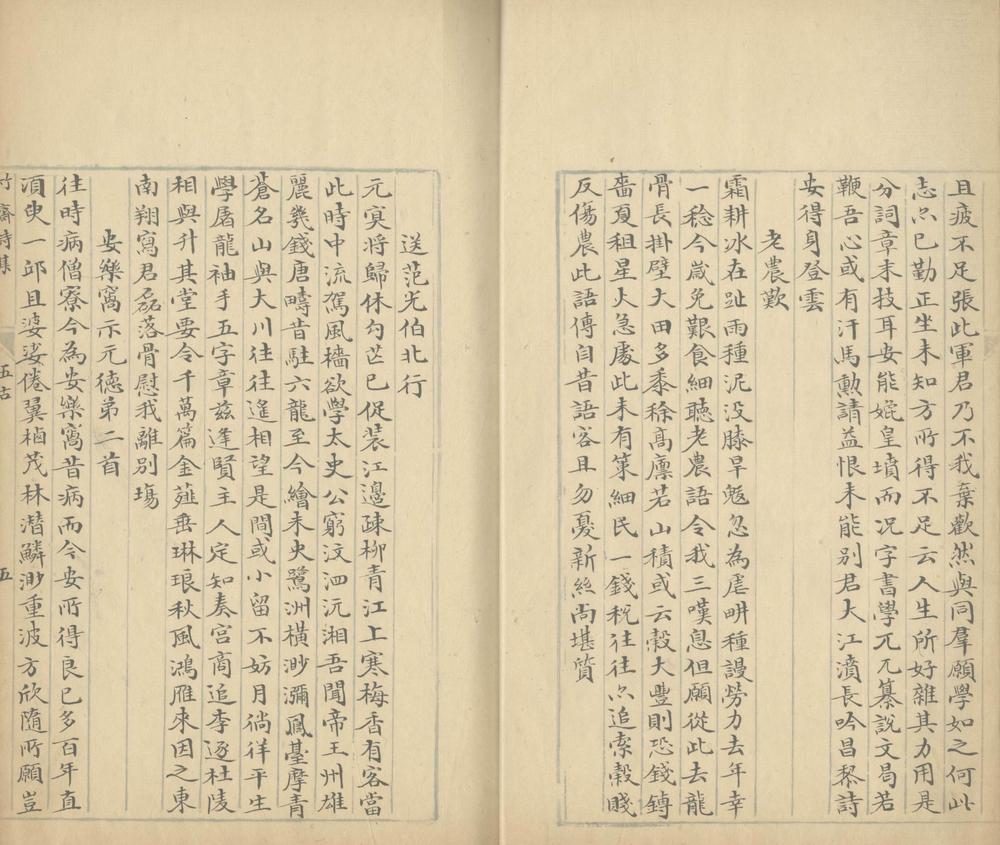 且疲不足張此軍君乃不我棄歡然與同羣願學如之何此
志亦已勤正坐未知方所得不足云人生所好雜其力用是
分詞章末技耳安能媲皇墳而况字書學兀兀纂說文曷若
鞭吾心或有汗馬勳請益恨未能别君大江濆長吟昌黎詩
安得身登雲
老農歎
霜耕冰在趾雨種泥没膝旱魃忽為虐畊種謾勞力去年幸
一稔今歲免艱食細聽老農語令我三嘆息但願從此去龍
骨長掛壁大田多黍稌高廪若山積或云穀大豐則恐錢鏄
嗇夏租星火急處此未有策細民一錢税往往亦追索穀賤
反傷農此語傳自昔語客且勿憂新絲尚堪質
送范光伯北行
元冥將歸休勾芒已促装江邊疎柳青江上寒梅香有客當
此時中流駕風檣欲學太史公窮汶泗沅湘吾聞帝王州雄
麗幾錢唐疇昔駐六龍至今繪未央鷺洲橫渺瀰鳳臺摩青
蒼名山與大川往往遙相望是間或小留不妨月徜徉平生
學屠龍袖手五字章兹逢賢主人定知奏宫商追李逐杜陵
相與升其堂要令千萬篇金薤垂琳琅秋風鴻雁來因之東
南翔寫君磊落骨慰我離别塲
安樂窩示元德弟二首
往時病僧寮今為安樂窩昔病而今安所得良已多百年直
須臾一邱且婆娑倦翼栖茂林潛鱗渺重波方欣隨所願豈
竹齋詩集 五古 五